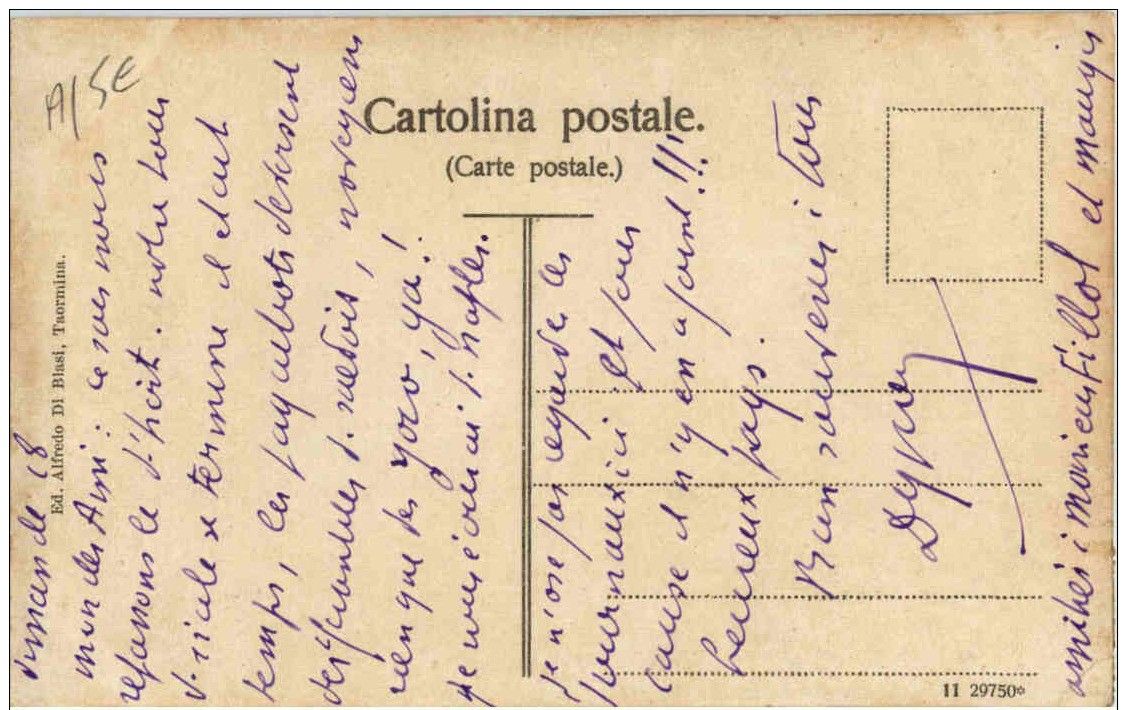 A/SE
Cartolina postale.
(Carte postale.)
Ed. Alfredo Di Blasi, Taormina.
dimanche 18
mon cher Ami : ce soir nous
repassons le d'hoit. notre tour
d. sicile se termine il etait
temps, les paquebots deversent
des d. suedois, norvegiens
rien que des yoyo, ya!
je vous écrirai d. naples.
je n'ose pas regarder les
journaux ici et pour
cause il n'y en a point!!!
heureux pays.
Bien souvenir i tous
amitiés i monsieur Fillol et
11 29750*